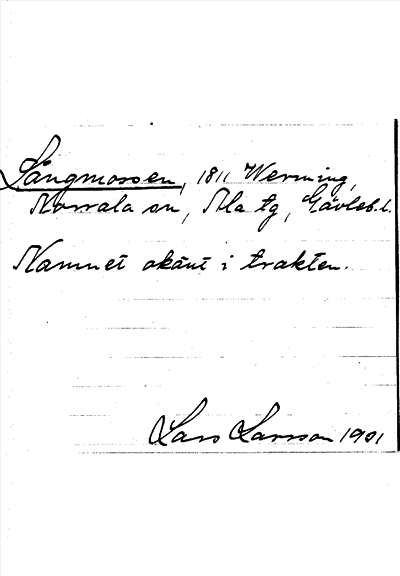 Långmossen, 1811 Werming,
Norrala sn, Ala tg, Gävleb. l.
Namnet okänt i trakten.
Lars Larsson 1901